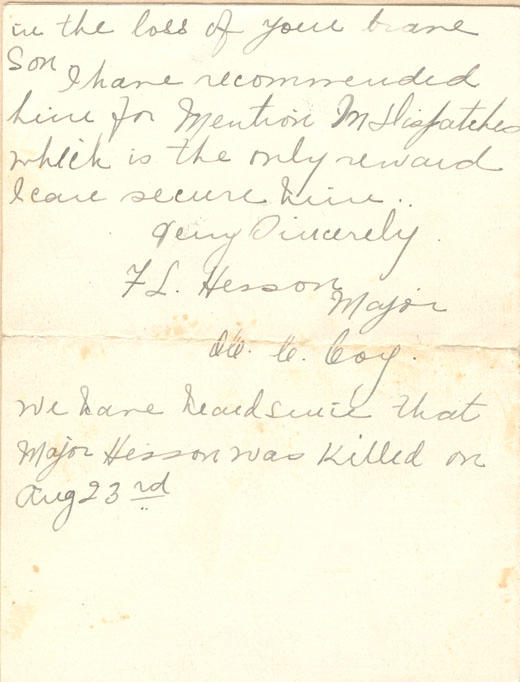 in the loss of your brave
Son I have recommended
him for Mention In Dispatches
which is the only reward
I can secure him..
Very Sincerely.
F L. Hesson Major
C. Coy.
We have heard since that
Major Hesson was Killed on
Aug 23rd